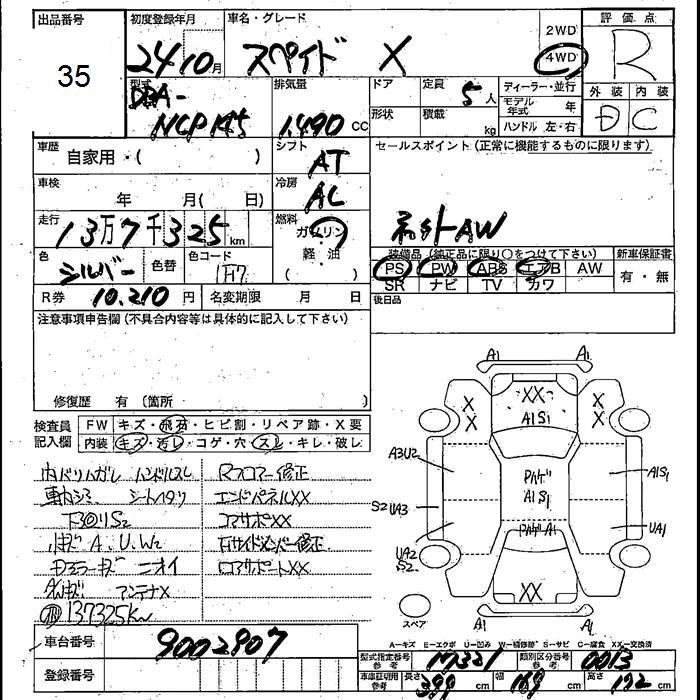 出品番号 初度登録年月 車名・グレード 2WD 評価点
35 24 10月 スペイド X 4WD R
型式 DBA- 排気量 ドア 定員 5人 ディーラー・並行 外装 内装
モデル年式 年
NCP145 1.490 CC 形状 積載 kg ハンドル 左・右 D C
車歴 自家用・( ) シフト AT セールスポイント(正常に機能するものに限ります)
車検 年 月( 日) 冷房 AC
走行 13万7千325km 燃料 ガソリン・軽・油 ネットAW
色 シルバー 色替 色コード 1F7 装備品(純正品に限り○をつけて下さい) 新車保証書
PS PW ABS エアB AW 有・無
SR ナビ TV カワ
R券 10.210円 名変期限 月 日 後日品
注意事項申告欄(不具合内容等は具体的に記入して下さい)
修復歴 有(箇所
検査員記入欄 FW キズ・飛石・ヒビ割・リペア跡・X要
内装 キズ・汚レ・コゲ・穴・スレ・キレ・破レ
内バリハガレ ハンドルスレ Rフロアー修正
車内シミ シートヘタリ エンドパネルXX
下回りS2 コアサポXX
小キズ A、U、W2 右サイドメンバー修正
ニオイ ロアサポートXX
アンテナX
137325Km
A1 A1
XX
X X X X
A1S1
A3U2 A1S1
Pハゲ
A1S1
S2 UA3 UA1
PハゲA1
UA2
S2
XX
スペア
A1 A1
A-キズ E-エクボ U-凹み W-補修跡 S-サビ C-腐食 XX-交換済
車台番号 9002907 型式指定番号 参考 17321 類別区分番号 参考 0013
登録番号 車庫証明用 参考 長さ 399cm 幅 169cm 高さ 172cm